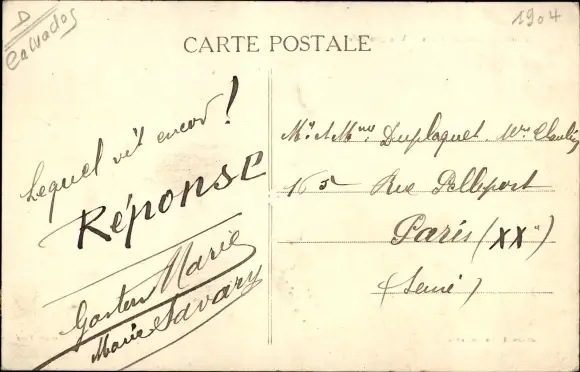 D
Calvados
1904
CARTE POSTALE
Lequel vit encor!
RÉPONSE
Gaston Marie
Marie Savary
Mr & Mme Duplaquet
Rue Pelleport
Paris (XXe)
(Seine)